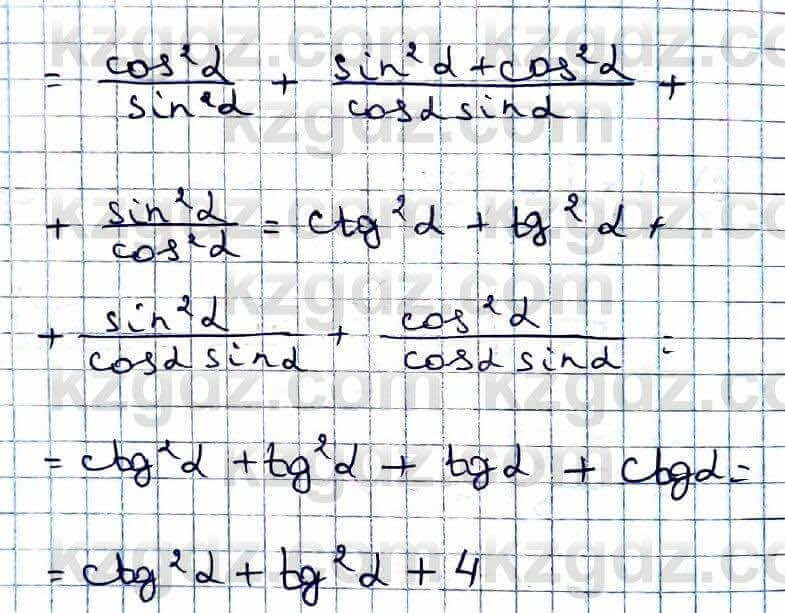 = cos²α/sin²α + (sin²α + cos²α)/(cosα sinα) +
+ sin²α/cos²α = ctg²α + tg²α +
+ sin²α/(cosα sinα) + cos²α/(cosα sinα) =
= ctg²α + tg²α + tgα + ctgα =
= ctg²α + tg²α + 4
kzgdz.com